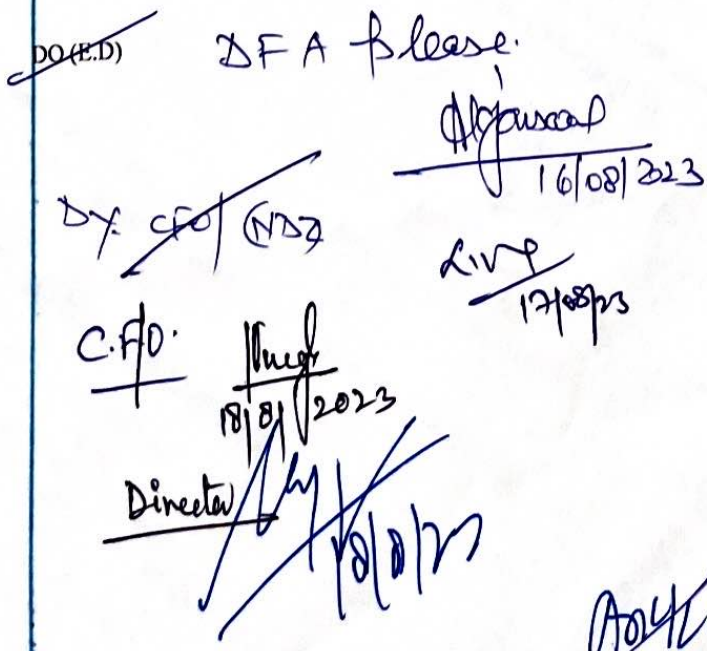 DO(E.D)
DFA please.
16/08/2023
Dy. CFO/(NDZ
17/08/23
C.F.O.
18/8/2023
Director
18/8/23